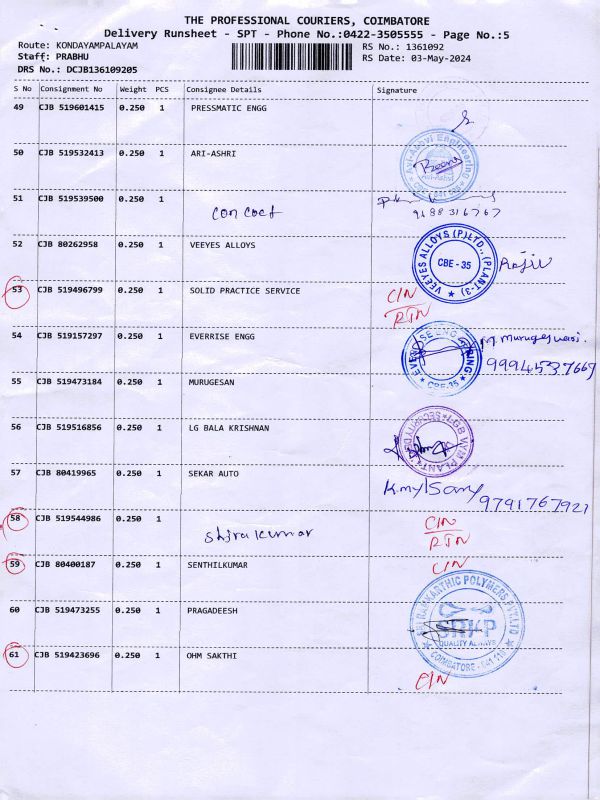 THE PROFESSIONAL COURIERS, COIMBATORE
Delivery Runsheet - SPT - Phone No.:0422-3505555 - Page No.:5
Route: KONDAYAMPALAYAM RS No.: 1361092
Staff: PRABHU RS Date: 03-May-2024
DRS No.: DCJB136109205
S No Consignment No Weight PCS Consignee Details Signature
49 CJB 519601415 0.250 1 PRESSMATIC ENGG
50 CJB 519532413 0.250 1 ARI-ASHRI
Avi-Ashvi Engineering
Avi-Ashvi
51 CJB 519539500 0.250 1
9188316767
52 CJB 80262958 0.250 1 VEEYES ALLOYS
VEEYES ALLOYS (P) LTD., (PLANT-3)
CBE - 35
53 CJB 519496799 0.250 1 SOLID PRACTICE SERVICE C/N
RTN
54 CJB 519157297 0.250 1 EVERRISE ENGG
CBE-35
M. Murugeswari.
9994537669
55 CJB 519473184 0.250 1 MURUGESAN
56 CJB 519516856 0.250 1 LG BALA KRISHNAN
57 CJB 80419965 0.250 1 SEKAR AUTO
9791767921
58 CJB 519544986 0.250 1 C/N
shirakumar RTN
59 CJB 80400187 0.250 1 SENTHILKUMAR C/N
60 CJB 519473255 0.250 1 PRAGADEESH
SRIRAMKARTHIC POLYMERS PVT.LTD
SRKP
QUALITY ALWAYS
61 CJB 519423696 0.250 1 OHM SAKTHI
C/N